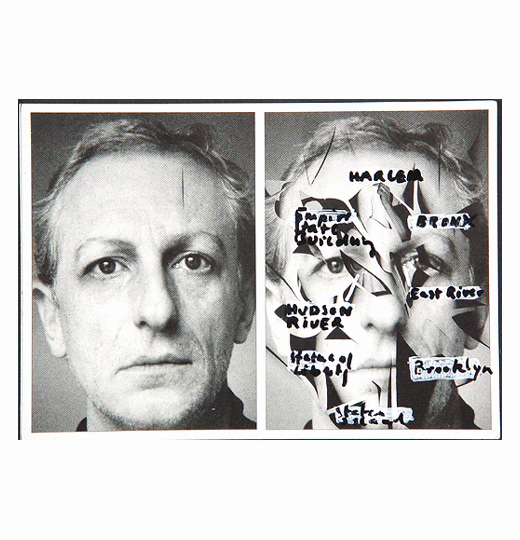 HARLEM
Empire
State
Building
BRONX
East River
HUDSON
RIVER
Statue of
Liberty
Brooklyn
Staten
Island